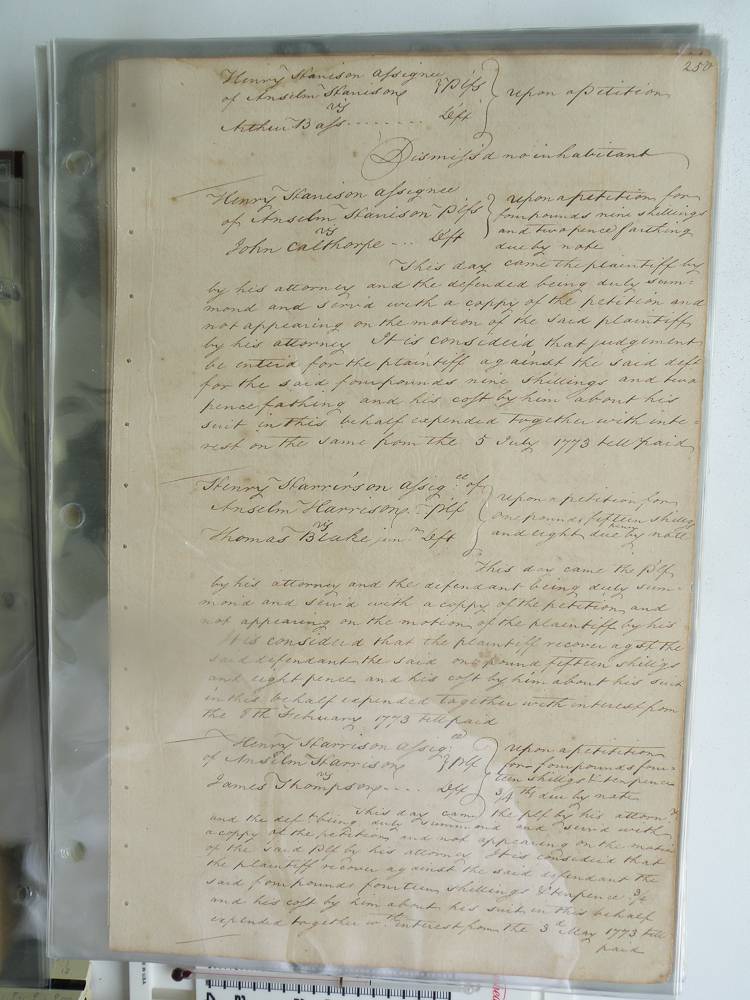 250
Henry Harrison assignee
of Anselm Harrison } Plfs } upon a petition
vs
Arthur Bass ........ Deft
Dismiss'd no inhabitant
Henry Harrison assignee
of Anselm Harrison Plfs
vs
John Calthorpe ... Deft
upon a petition for
four pounds nine shillings
and two pence farthing
due by note
This day came the plaintiff by
by his attorney and the defended being duly sum=
mond and serv'd with a coppy of the petition and
not appearing on the motion of the said plaintiff
by his attorney It is consider'd that judgement
be enter'd for the plaintiff against the said deft
for the said four pounds nine shillings and two
pence fathing and his cost by him about his
suit in this behalf expended together with inte=
rest on the same from the 5 July 1773 till paid
Henry Harrison assigee of
Anselm Harrison Plf
vs
Thomas Blake junr Deft
upon a petition for
one pounds fifteen shillgs
and eight pence due by note
This day came the Plf
by his attorney and the defendant being duly sum=
mond and serv'd with a coppy of the petition and
not appearing on the motion of the plaintiff by his
It is considerd that the plaintiff recover agst the
said defendant the said one pound fifteen shillgs
and eight pence and his cost by him about his suit
in this behalf expended together with interest from
the 8th February 1773 till paid
Henry Harrison assigee
of Anselm Harrison } Plf
vs
James Thompson .... Deft
upon a petition
for four pounds four=
teen shillgs & ten pence
3/4ths due by note
This day came the plf by his attorny
and the deft being duly summond and serv'd with
a coppy of the petition and not appearing on the motion
of the said Plf by his attorney It is considerd that
the plaintiff recover against the said defendant the
said four pound fourteen shellings & ten pence 3/4
and his cost by him about his suit in this behalf
expended together wth interest from the 3d May 1773 till
paid